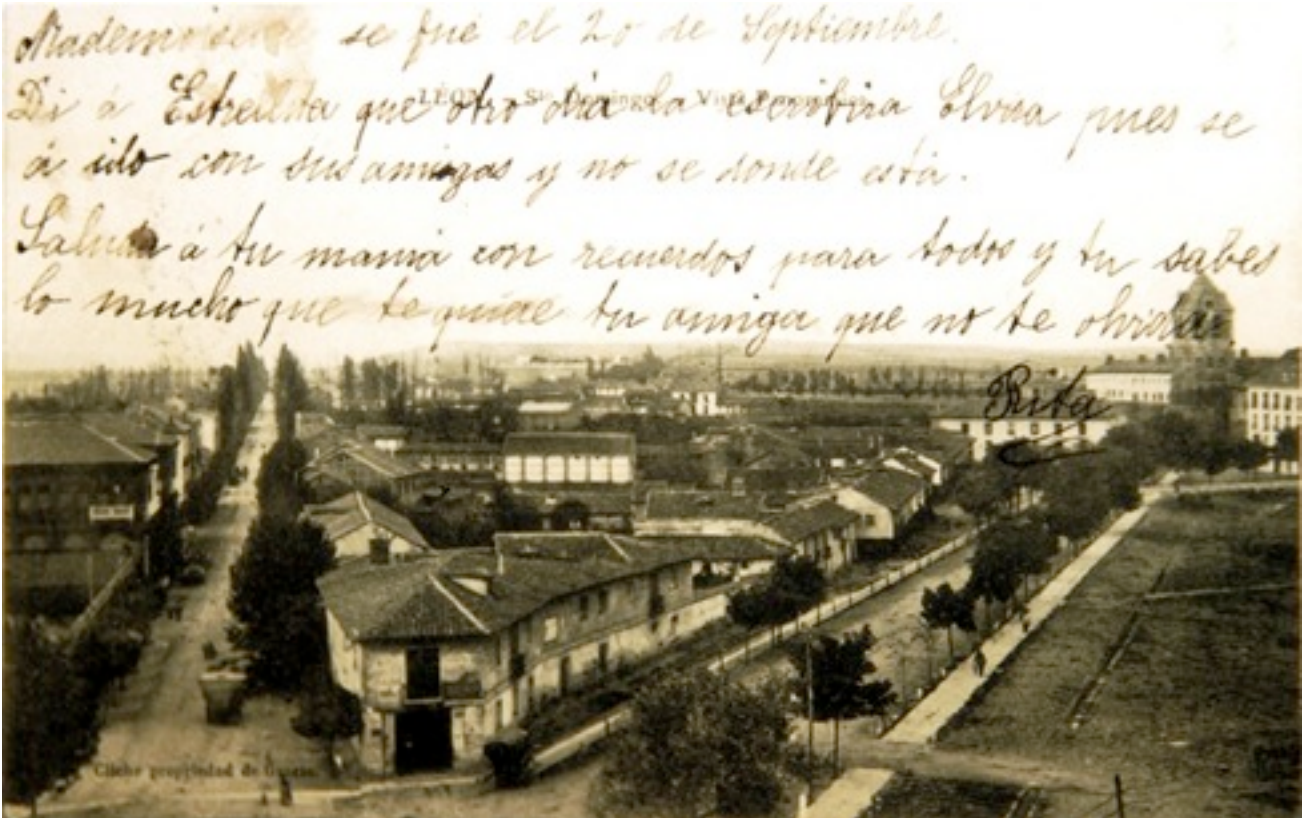 Mademoiselle se fue el 20 de Septiembre.
LEON. Sto. Domingo. Vista
Di á Estrellita que otro dia la escribira Elvira pues se
á ido con sus amigas y no se donde está.
Saluda á tu mamá con recuerdos para todos y tu sabes
lo mucho que te quiere tu amiga que no te olvida
Rita
Cliche propiedad de